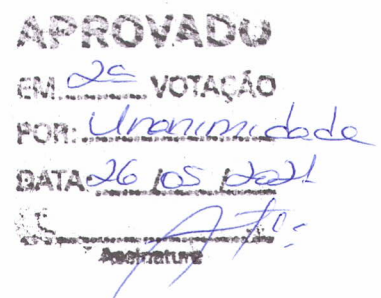 APROVADO
EM 2ª VOTAÇÃO
POR: Unanimidade
DATA 26/05/2021
Assinatura